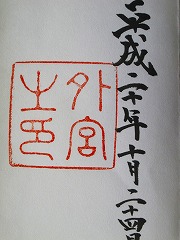 平成二十年十月二十四日
外宮
之印